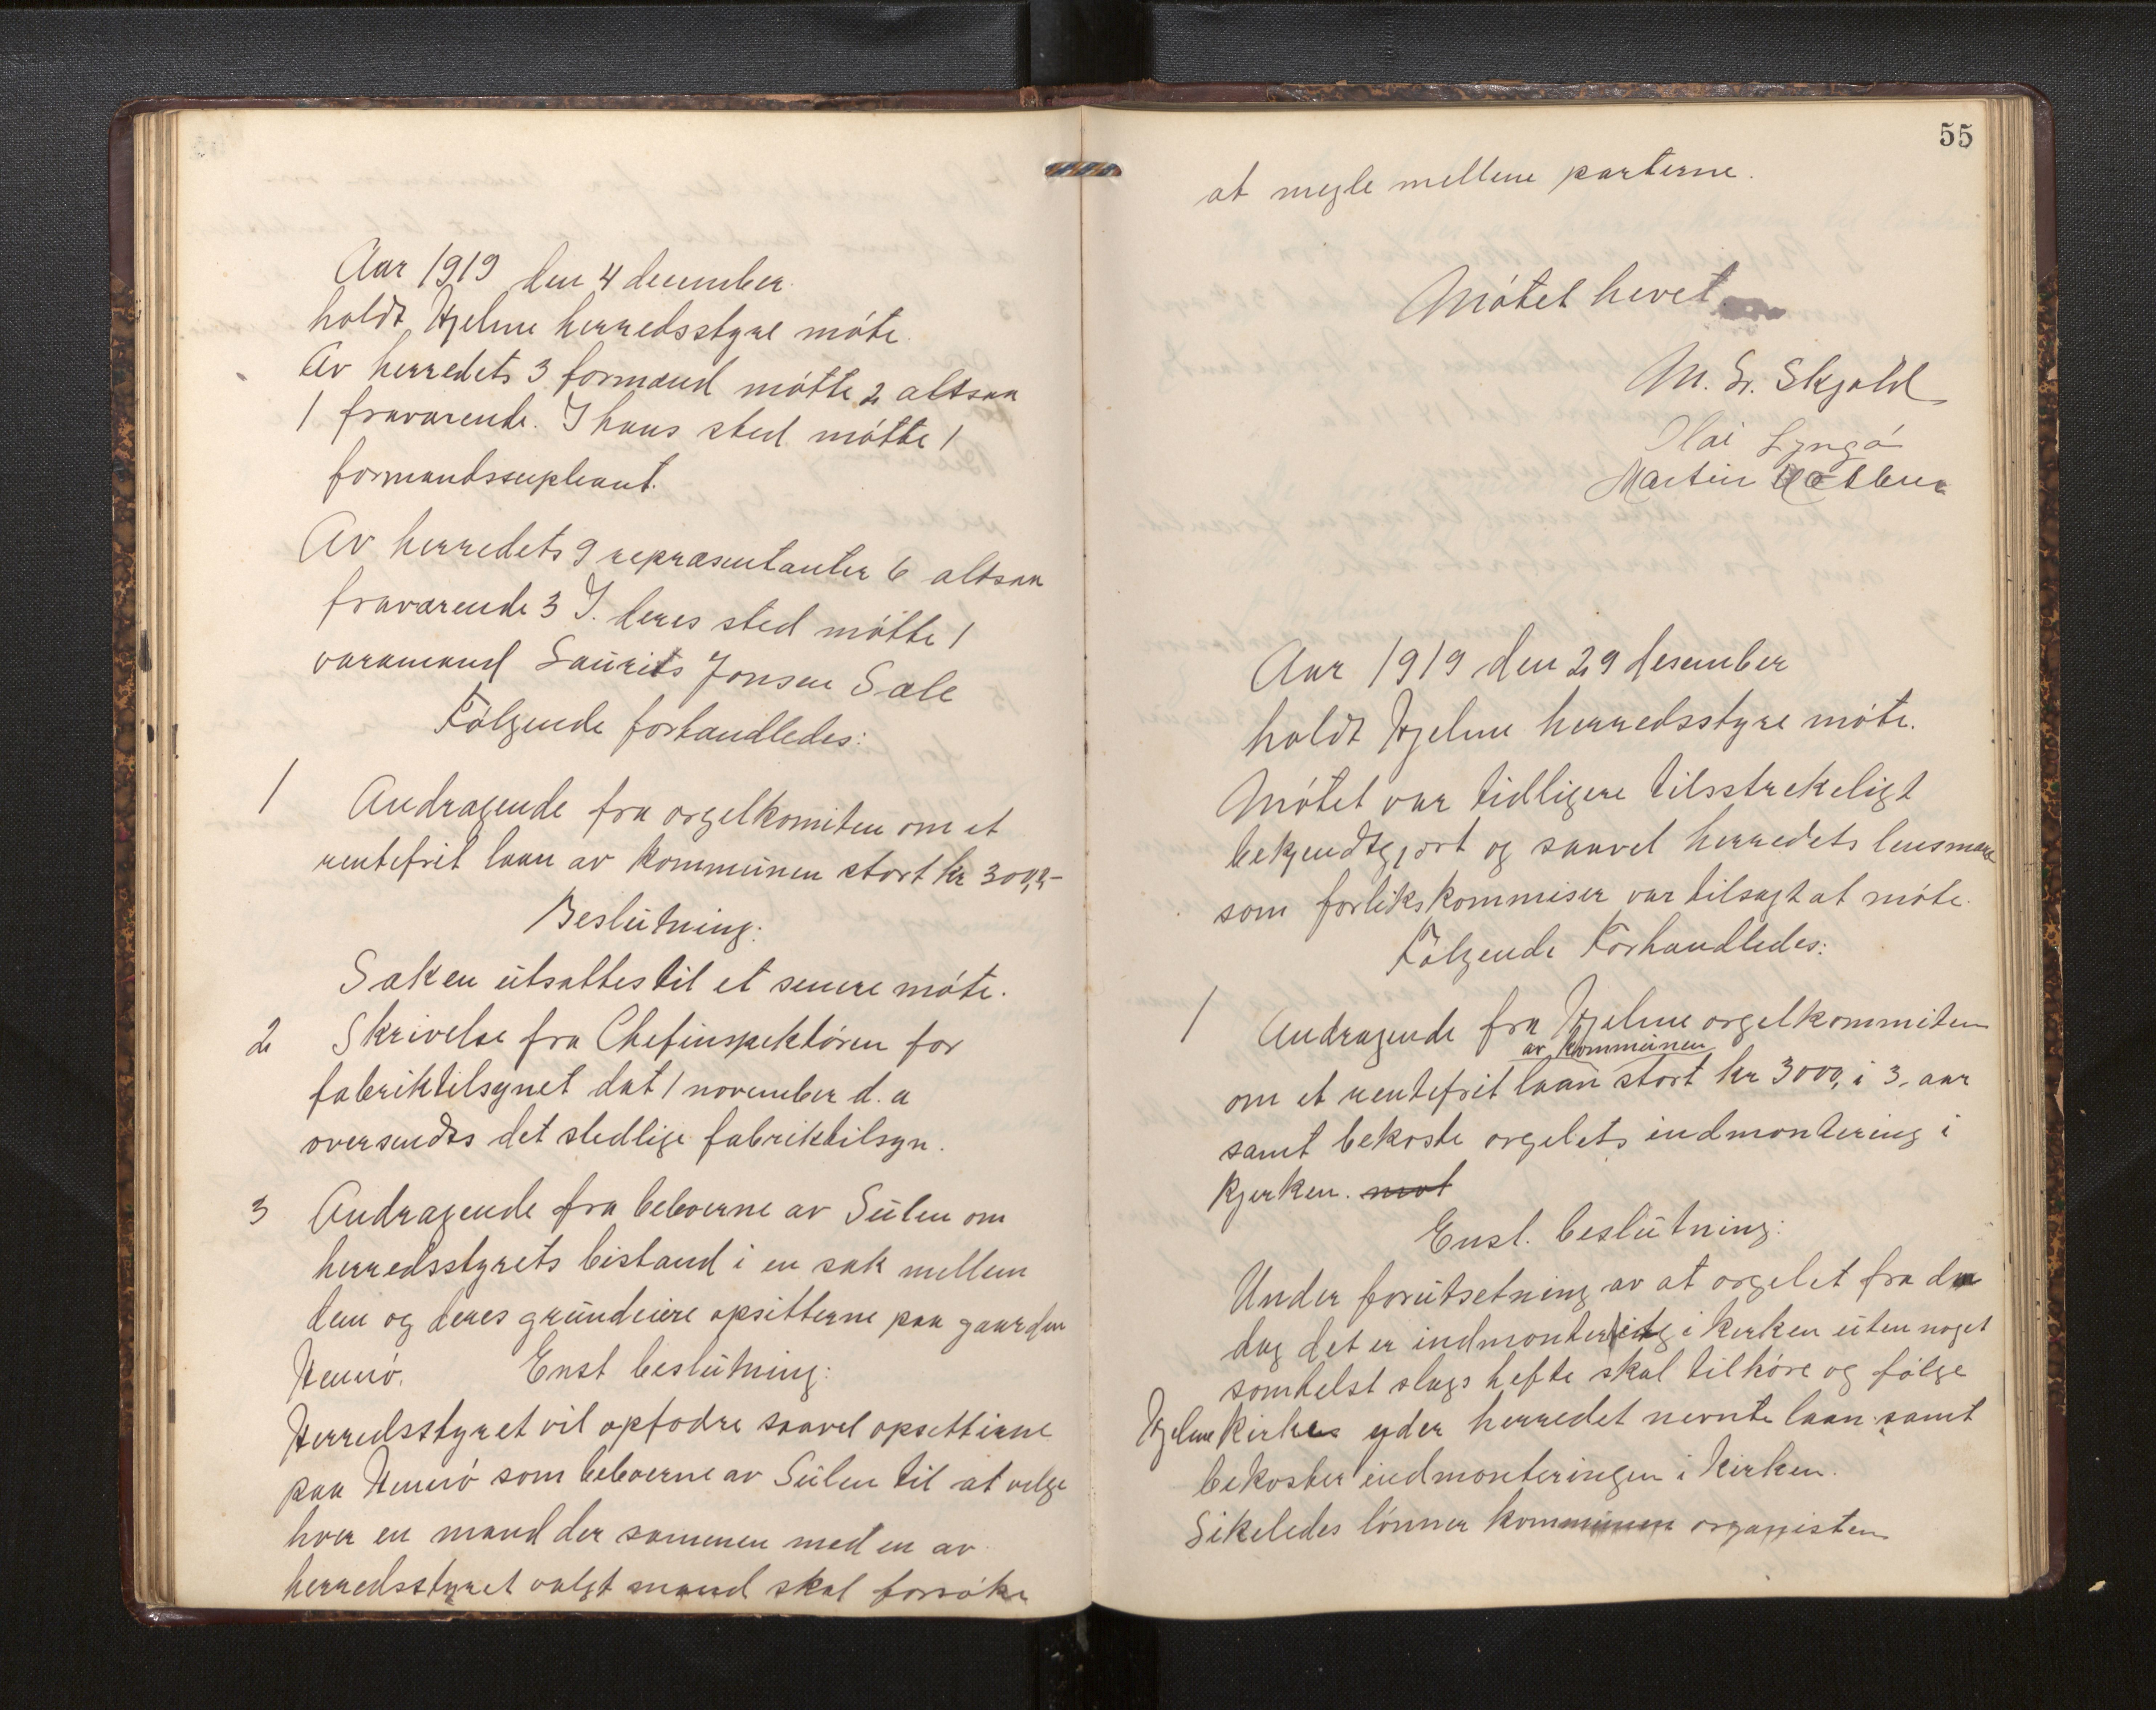 Aar 1919 den 4 december
holdt Hjelme herredsstyre møte.
Av herredets 3 formænd møtte 2 altsaa
1 fraværende. I hans sted møtte 1
formandssupleant.
Av herredets 9 repræsentanter 6 altsaa
fraværende 3 I. deres sted møtte 1
varamand Laurits Jonsen Sæle
Følgende forhandledes:
1 Andragende fra orgelkomiten om et
rentefrit laan av kommunen stort kr
Beslutning:
Saken utsattes til et senere møte.
2 Skrivelse fra Chefinspektøren for
fabriktilsynet dat 1 november d. a
oversendes det stedlige fabriktilsyn.
3 Andragende fra beboerne av Sulen om
herredsstyrets bistand i en sak mellem
dem og deres grundeiere opsitterne paa gaarden
Hernø. Enst beslutning:
Herredsstyret vil opfodre saavel opsitterne
paa Hernø som beboerne av Sulen til at velge
hver en mand der sammen med en av
herredsstyret valgt mand skal forsøke
55
at megle mellem parterne.
Møtet hevet
M. Skjold
Olai Lyngø
Martin
Aar 1919 den 29 desember
holdt Hjelme herredsstyre møte.
Møtet var tidligere tilsstrekeligt
bekjendtgjort og saavel herredets lensmand
som forlikskommiser var tilsagt at møte.
Følgende Forhandledes:
1 Andragende fra Hjelme orgelkommiten
av kommunen
om et rentefrit laan stort kr 3000, i 3. aar
samt bekoste orgelets indmontering i
kjerken. mot
Enst. beslutning:
Under forutsetning av at orgelet fra den
dag det er indmontert i kirken uten noget
somhelst slags hefte skal tilhøre og følge
Hjelme kirke yder herredet nevnte laan samt
bekoster indmonteringen i kirken.
Likeledes lønner kommunen organisten